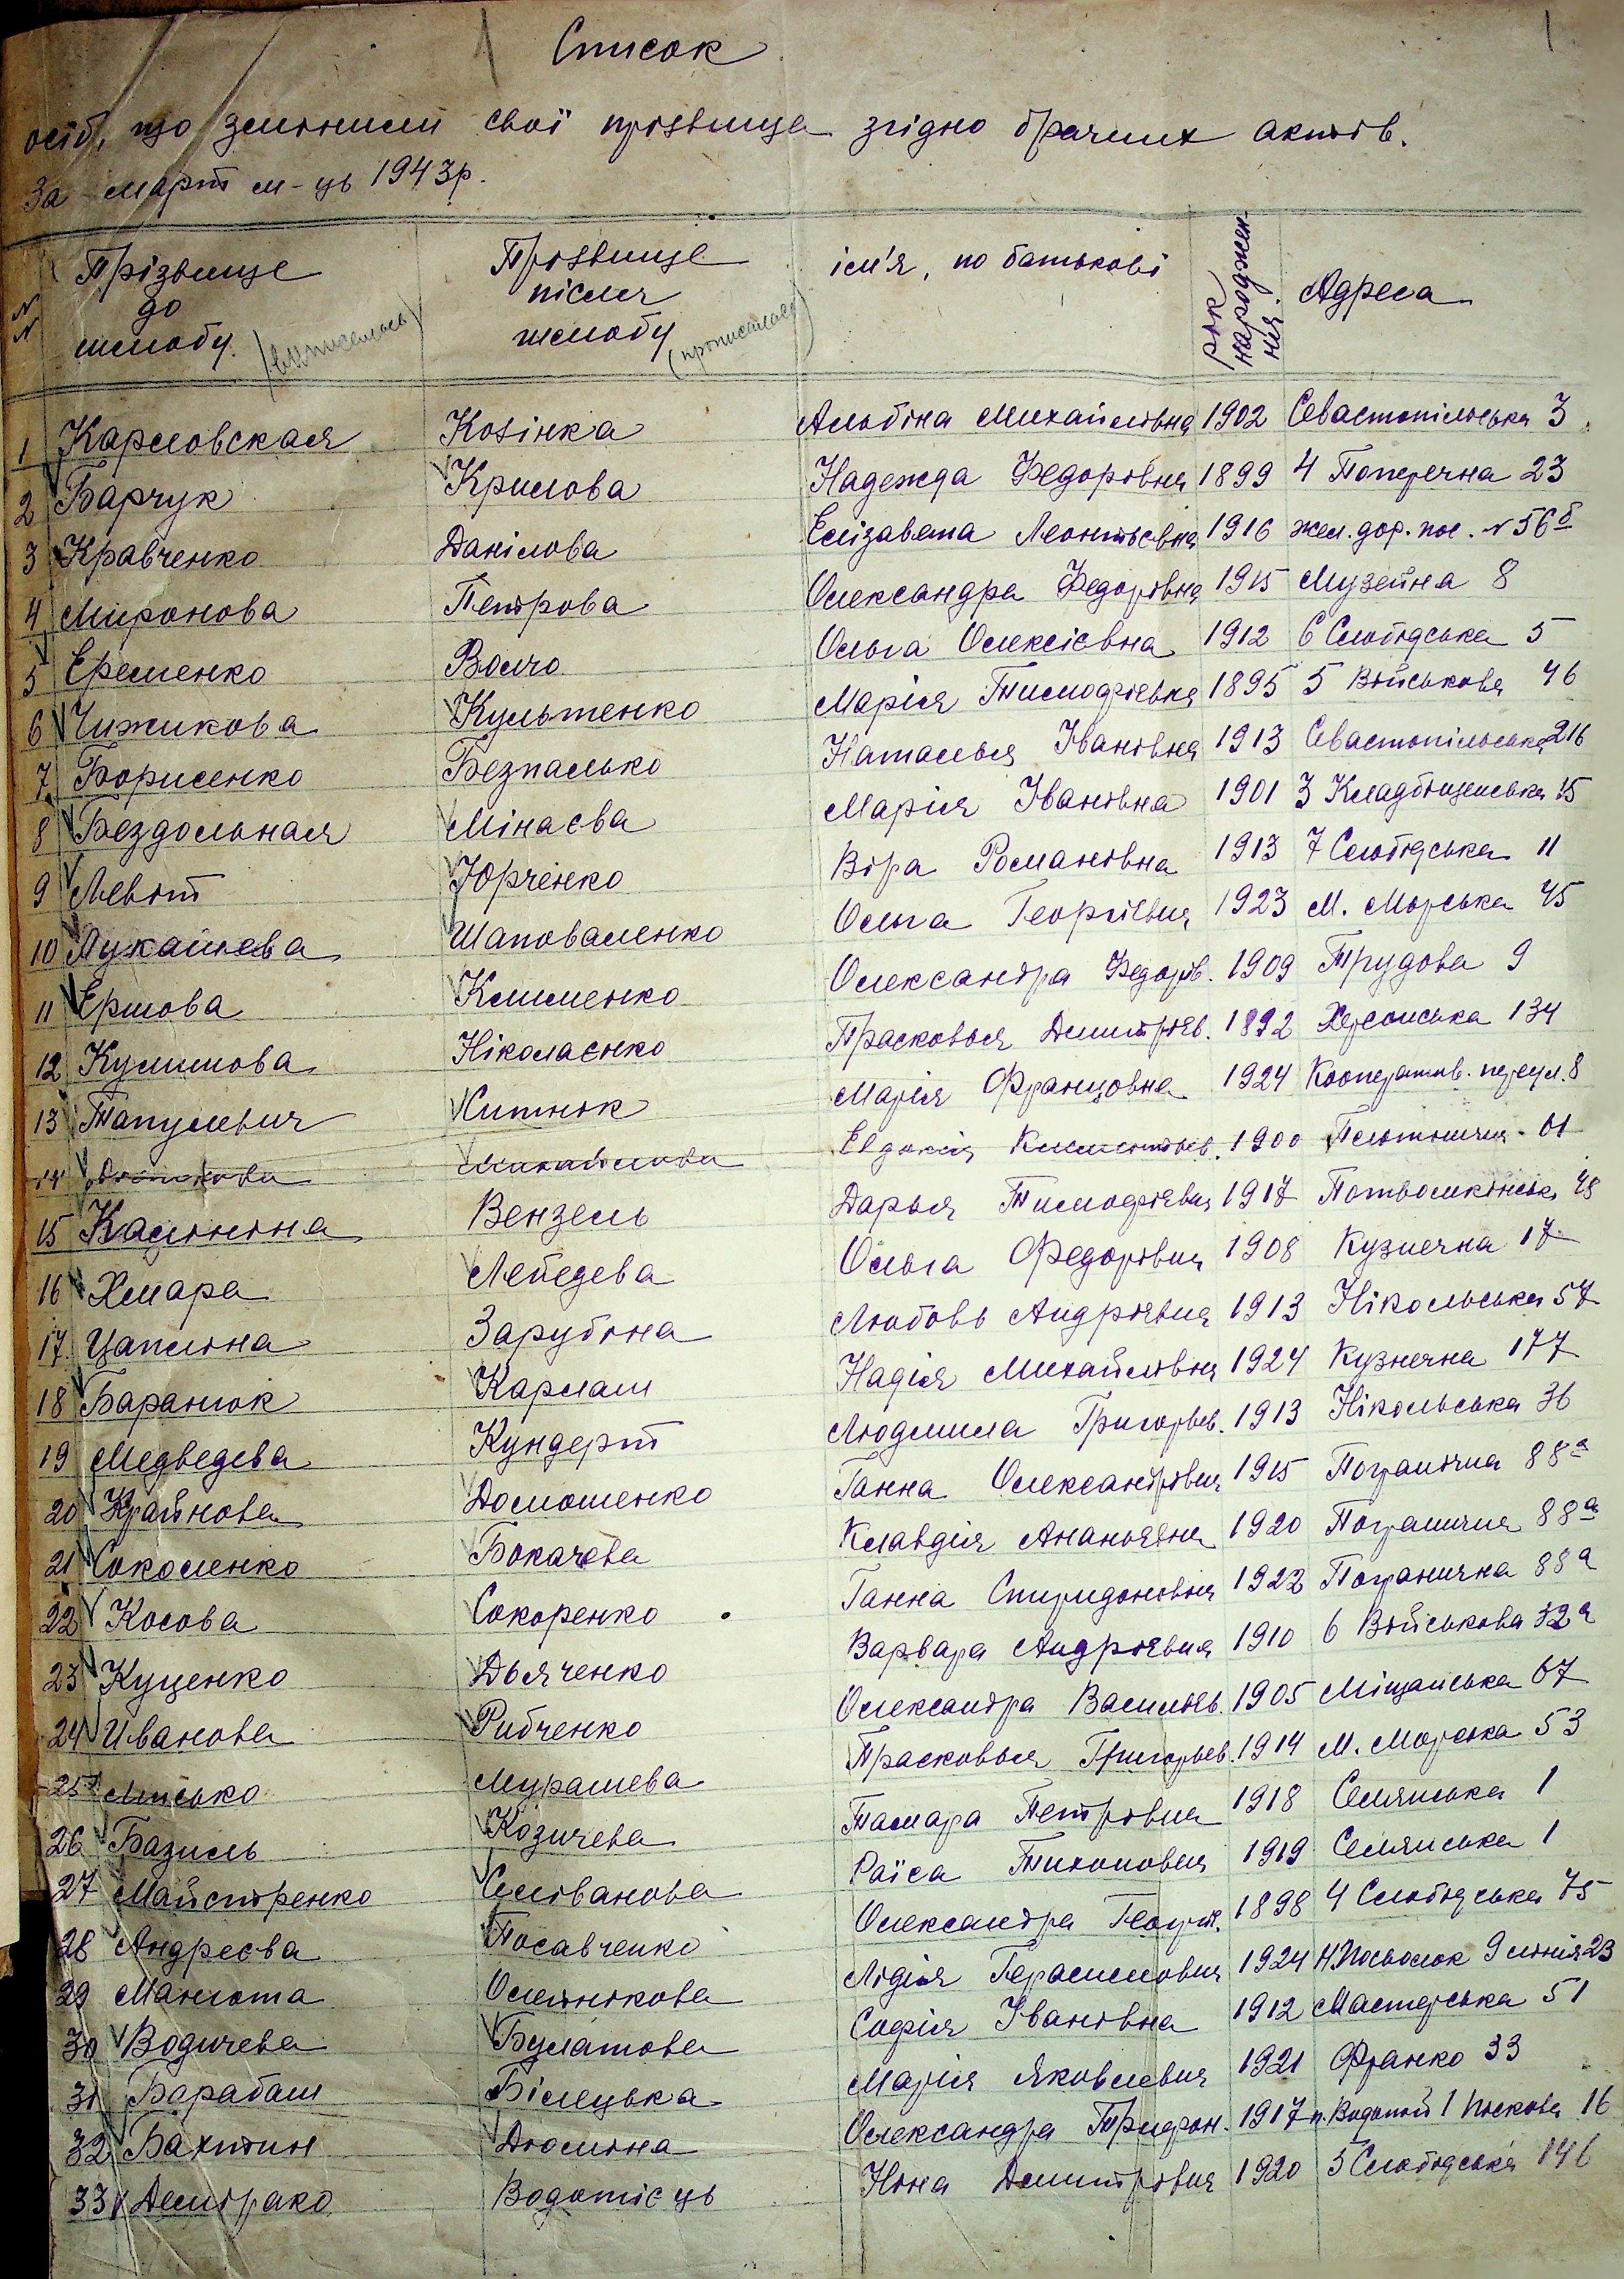 Список
осіб, що змінили свої прізвища згідно брачних актів.
За март м-ць 1943р.
NN Прізвище до шлюбу (выписалась) Прізвище після шлюбу (прописалась) ім'я, по батькові рік народження Адреса
1 Карловская Козінка Альбіна Михайлівна 1902 Севастопільська 3
2 Барчук Крилова Надежда Федорівна 1899 4 Поперечна 23
3 Кравченко Данілова Елізавета Леонтьєвна 1916 жел. дор. пос. N 56б
4 Миронова Петрова Олександра Федорівна 1915 Музейна 8
5 Еременко Волчо Ольга Олексієвна 1912 6 Слобідська 5
6 Чижикова Культенко Марія Тимофієвна 1895 5 Військова 46
7 Борисенко Безпалько Наталья Івановна 1913 Севастопільська 216
8 Бездольная Мінаєва Марія Івановна 1901 3 Кладбіщенська 15
9 Левіт Юрченко Віра Романовна 1913 7 Слобідська 11
10 Лукашева Шаповаленко Ольга Георгієвна 1923 М. Морська 45
11 Ершова Клименко Олександра Федорів. 1909 Трудова 9
12 Кулішова Ніколаєнко Прасковья Дмитрієв. 1892 Херсонська 134
13 Тапулевич Житнюк Марія Францовна 1924 Кооператив. переул. 8
14 Михайлова Евдокія Климентьев. 1900 61
15 Калініна Вензель Дарья Тимофієвна 1917 Потьомкінськ. 48
16 Хмара Лебедева Ольга Федорівна 1908 Кузнечна 17
17 Цапліна Зарубіна Любовь Андрієвна 1913 Нікольська 57
18 Баранюк Карлаш Надія Михайлівна 1924 Кузнечна 177
19 Медведева Кундерт Людмила Григорьев. 1913 Нікольська 36
20 Крайнова Домошенко Ганна Олександрівна 1915 Погранічна 88а
21 Соколенко Бокачева Клавдія Ананьевна 1920 Погранична 88а
22 Косова Сокоренко Ганна Спиридоновна 1922 Погранична 88а
23 Куценко Дьяченко Варвара Андрієвна 1910 6 Військова 32а
24 Иванова Рибченко Олександра Васильєв. 1905 Міщанська 67
25 Лисько Мурашева Прасковья Григорьев. 1914 М. Морська 53
26 Базиль Козичева Тамара Петрівна 1918 Селянська 1
27 Майстренко Селіванова Раїса Тихоновна 1919 Селянська 1
28 Андреєва Посавченко Олександра Георг. 1898 4 Слобідська 75
29 Манюта Олейнікова Лідія Герасимовна 1924 Н. Посьолок 9 лінія 23
30 Водичева Булатова Софія Івановна 1912 Мастерська 51
31 Барабаш Білецька Марія Яковлевна 1921 Франко 33
32 Бахитин Дюміна Олександра Трифон. 1917 п. Водопой 1 16
33 Водотієць Ніна Дмитрівна 1920 5 Слобідська 146